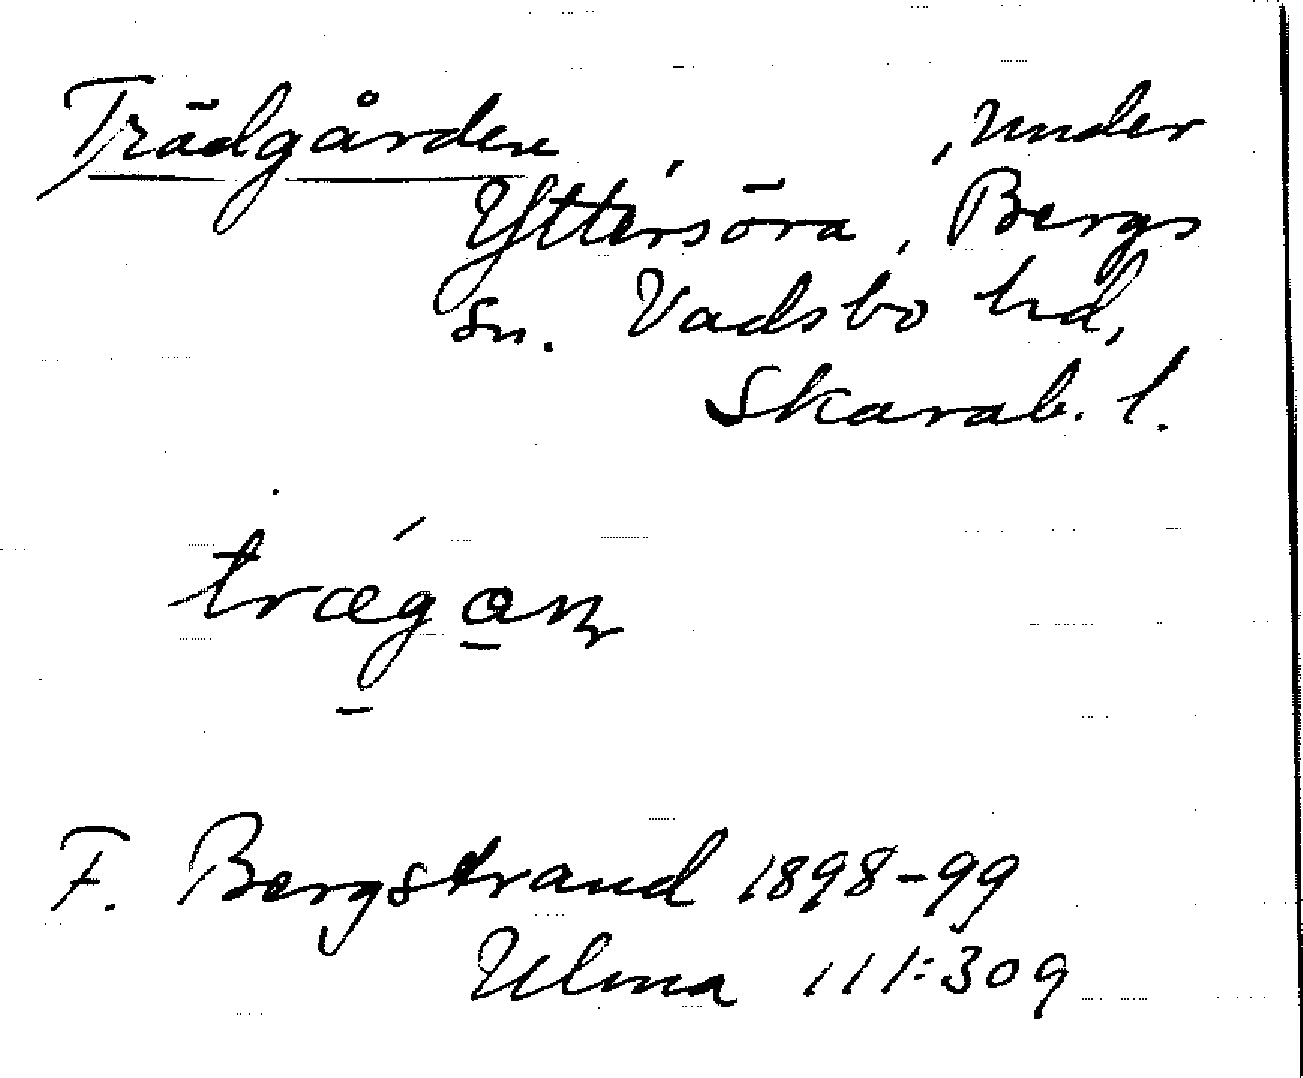 Trädgården , under
Yttersöra, Bergs
sn. Vadsbo hd,
Skarab. l.
trægan
F. Bergstrand 1898-99
Ulma 111:309